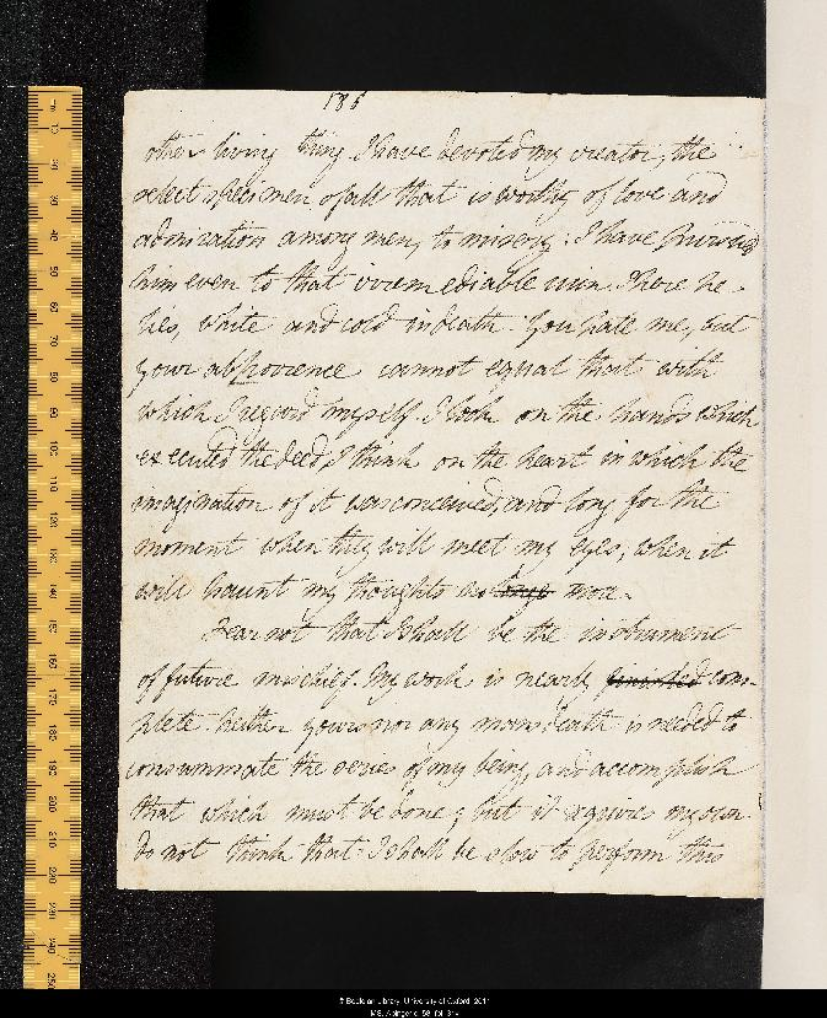 186
other living thing I have devoted my creator, the
select specimen of all that is worthy of love and
admiration among men, to misery: I have pursued
him even to that irremediable ruin. There he
lies, white and cold in death. You hate me, but
your abhorrence cannot equal that with
which I regard myself. I look on the hands which
executed the deed, I think on the heart in which the
imagination of it was conceived, and long for the
moment when they will meet my eyes, when it
will haunt my thoughts no longe more.
Fear not that I shall be the instrument
of future mischief. My work is nearly finished com-
plete. Neither yours nor any mans death is needed to
consummate the series of my being, and accomplish
that which must be done; but it requires my own.
Do not think that I shall be slow to perform this
© Bodleian Library, University of Oxford, 2011
MS. Abinger c. 58, fol.